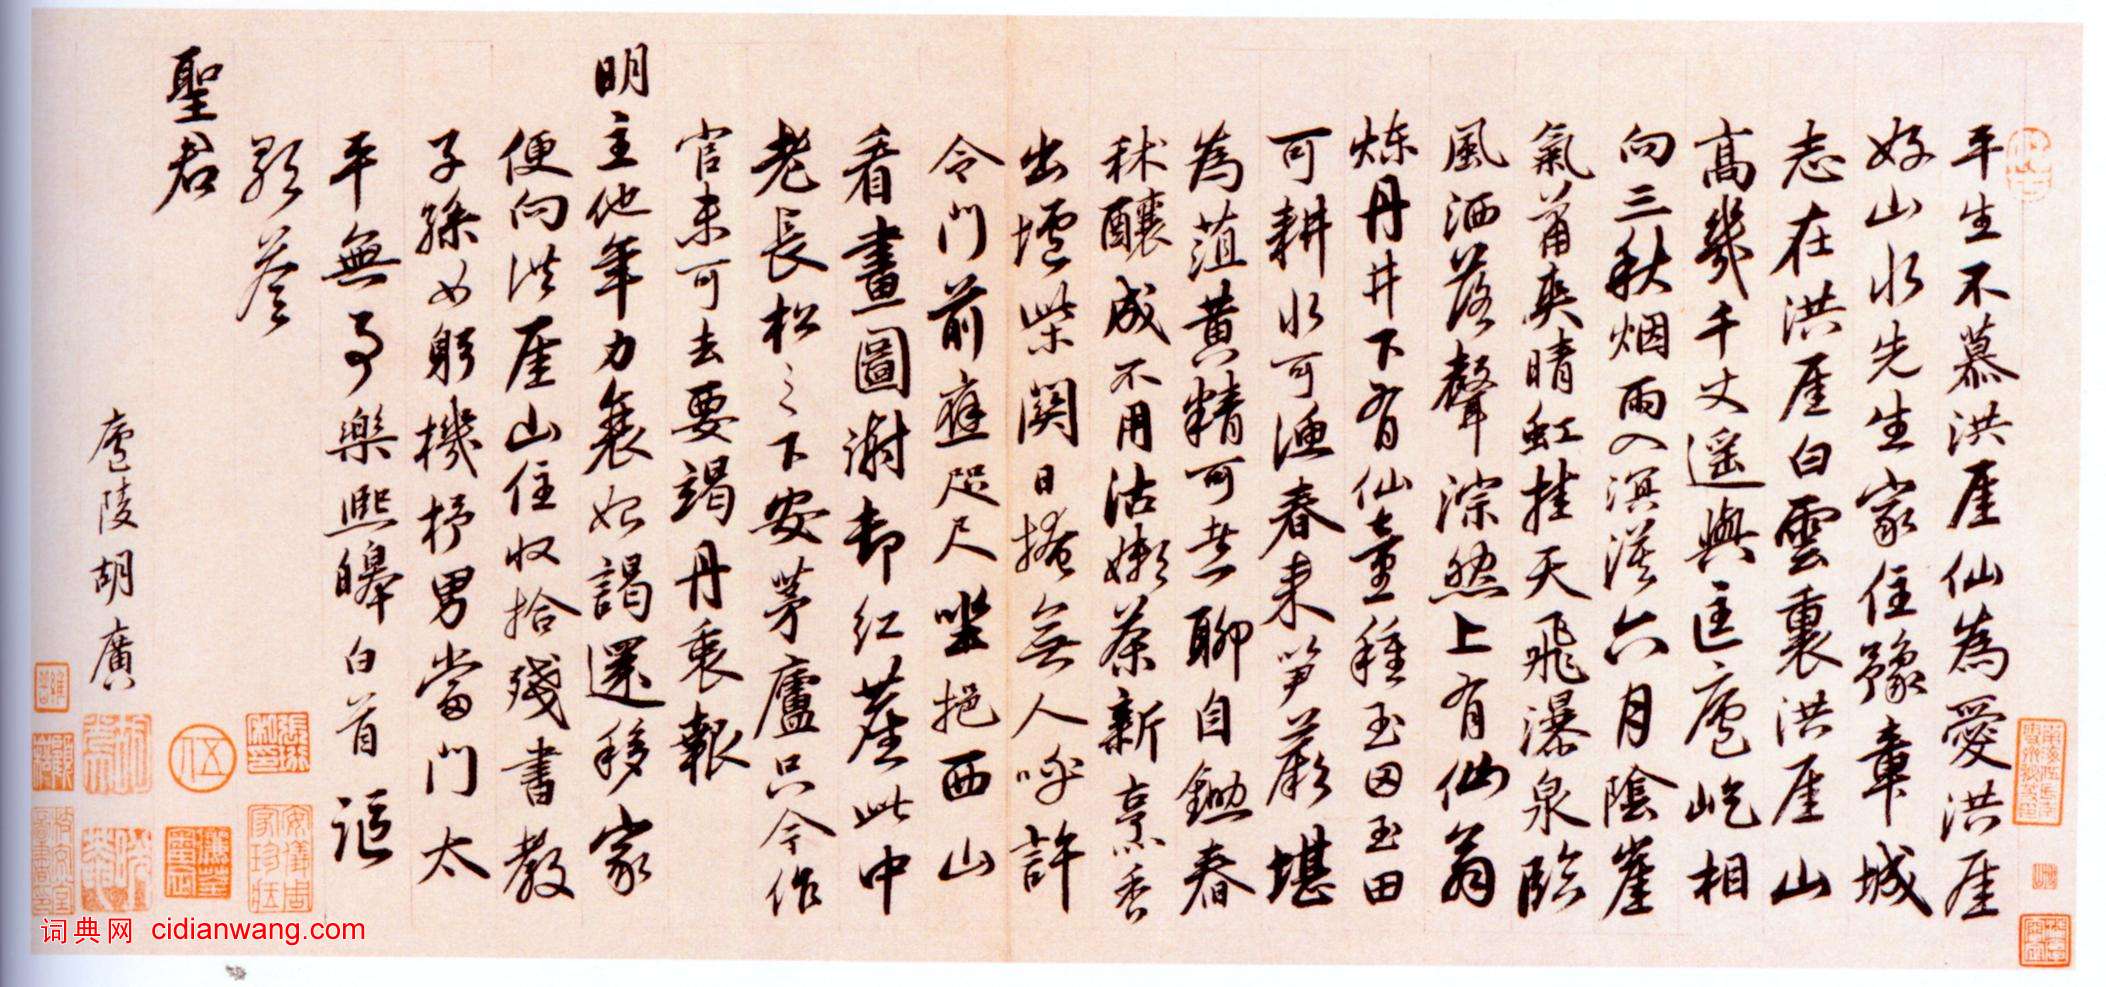 平生不慕洪厓仙為愛洪厓
好山水先生家住豫章城
志在洪厓白雲裏洪厓山
高幾千丈遥與匡廬屹相
向三秋烟雨入溟漠六月陰崖
氣蕭爽晴虹挂天飛瀑泉臨
風洒落聲淙然上有仙翁
煉丹井下有仙童種玉田玉田
可耕水可漁春来笋蕨堪
為菹黄精可煮聊自鋤春
秫釀成不用沽嫩茶新烹香
出壚柴関日掩無人呼許
令門前應咫尺坐挹西山
看畫圖謝却紅塵此中
老長松之下安茅廬只今作
官未可去要竭丹衷報
明主他年力衰始謁還移家
便向洪厓山住收拾殘書教
子孫女躬機杼男當門太
平無事樂熙皞白首謳
歌答
聖君
廬陵胡廣
词典网 cidianwang.com